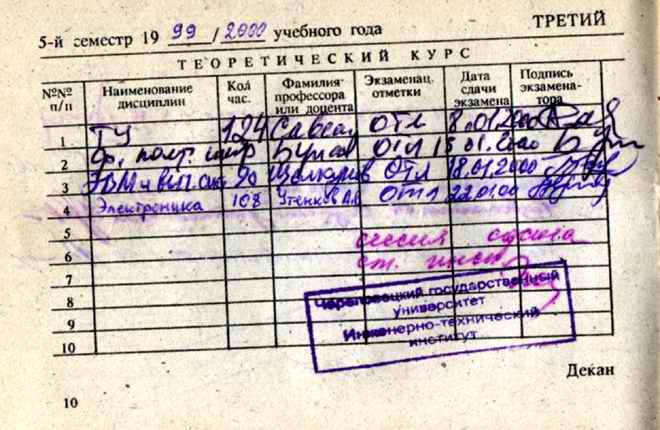 5-й семестр 19 99 / 2000 учебного года ТРЕТИЙ
ТЕОРЕТИЧЕСКИЙ КУРС
№№ п/п Наименование дисциплин Кол час. Фамилия профессора или доцента Экзаменац. отметки Дата сдачи экзамена Подпись экзамена- тора
1 ТУ 124 ОТЛ 8.01.2000
2 ОТЛ 15.01.2000
3 ЭВМ и выч. 90 ОТЛ 18.01.2000
4 Электроника 108 Утенков ОТЛ 22.01.00
5 сессия сдана
6 ст. инсп.
7
8
9
10
Череповецкий государственный
университет
Инженерно-технический
институт
Декан
10